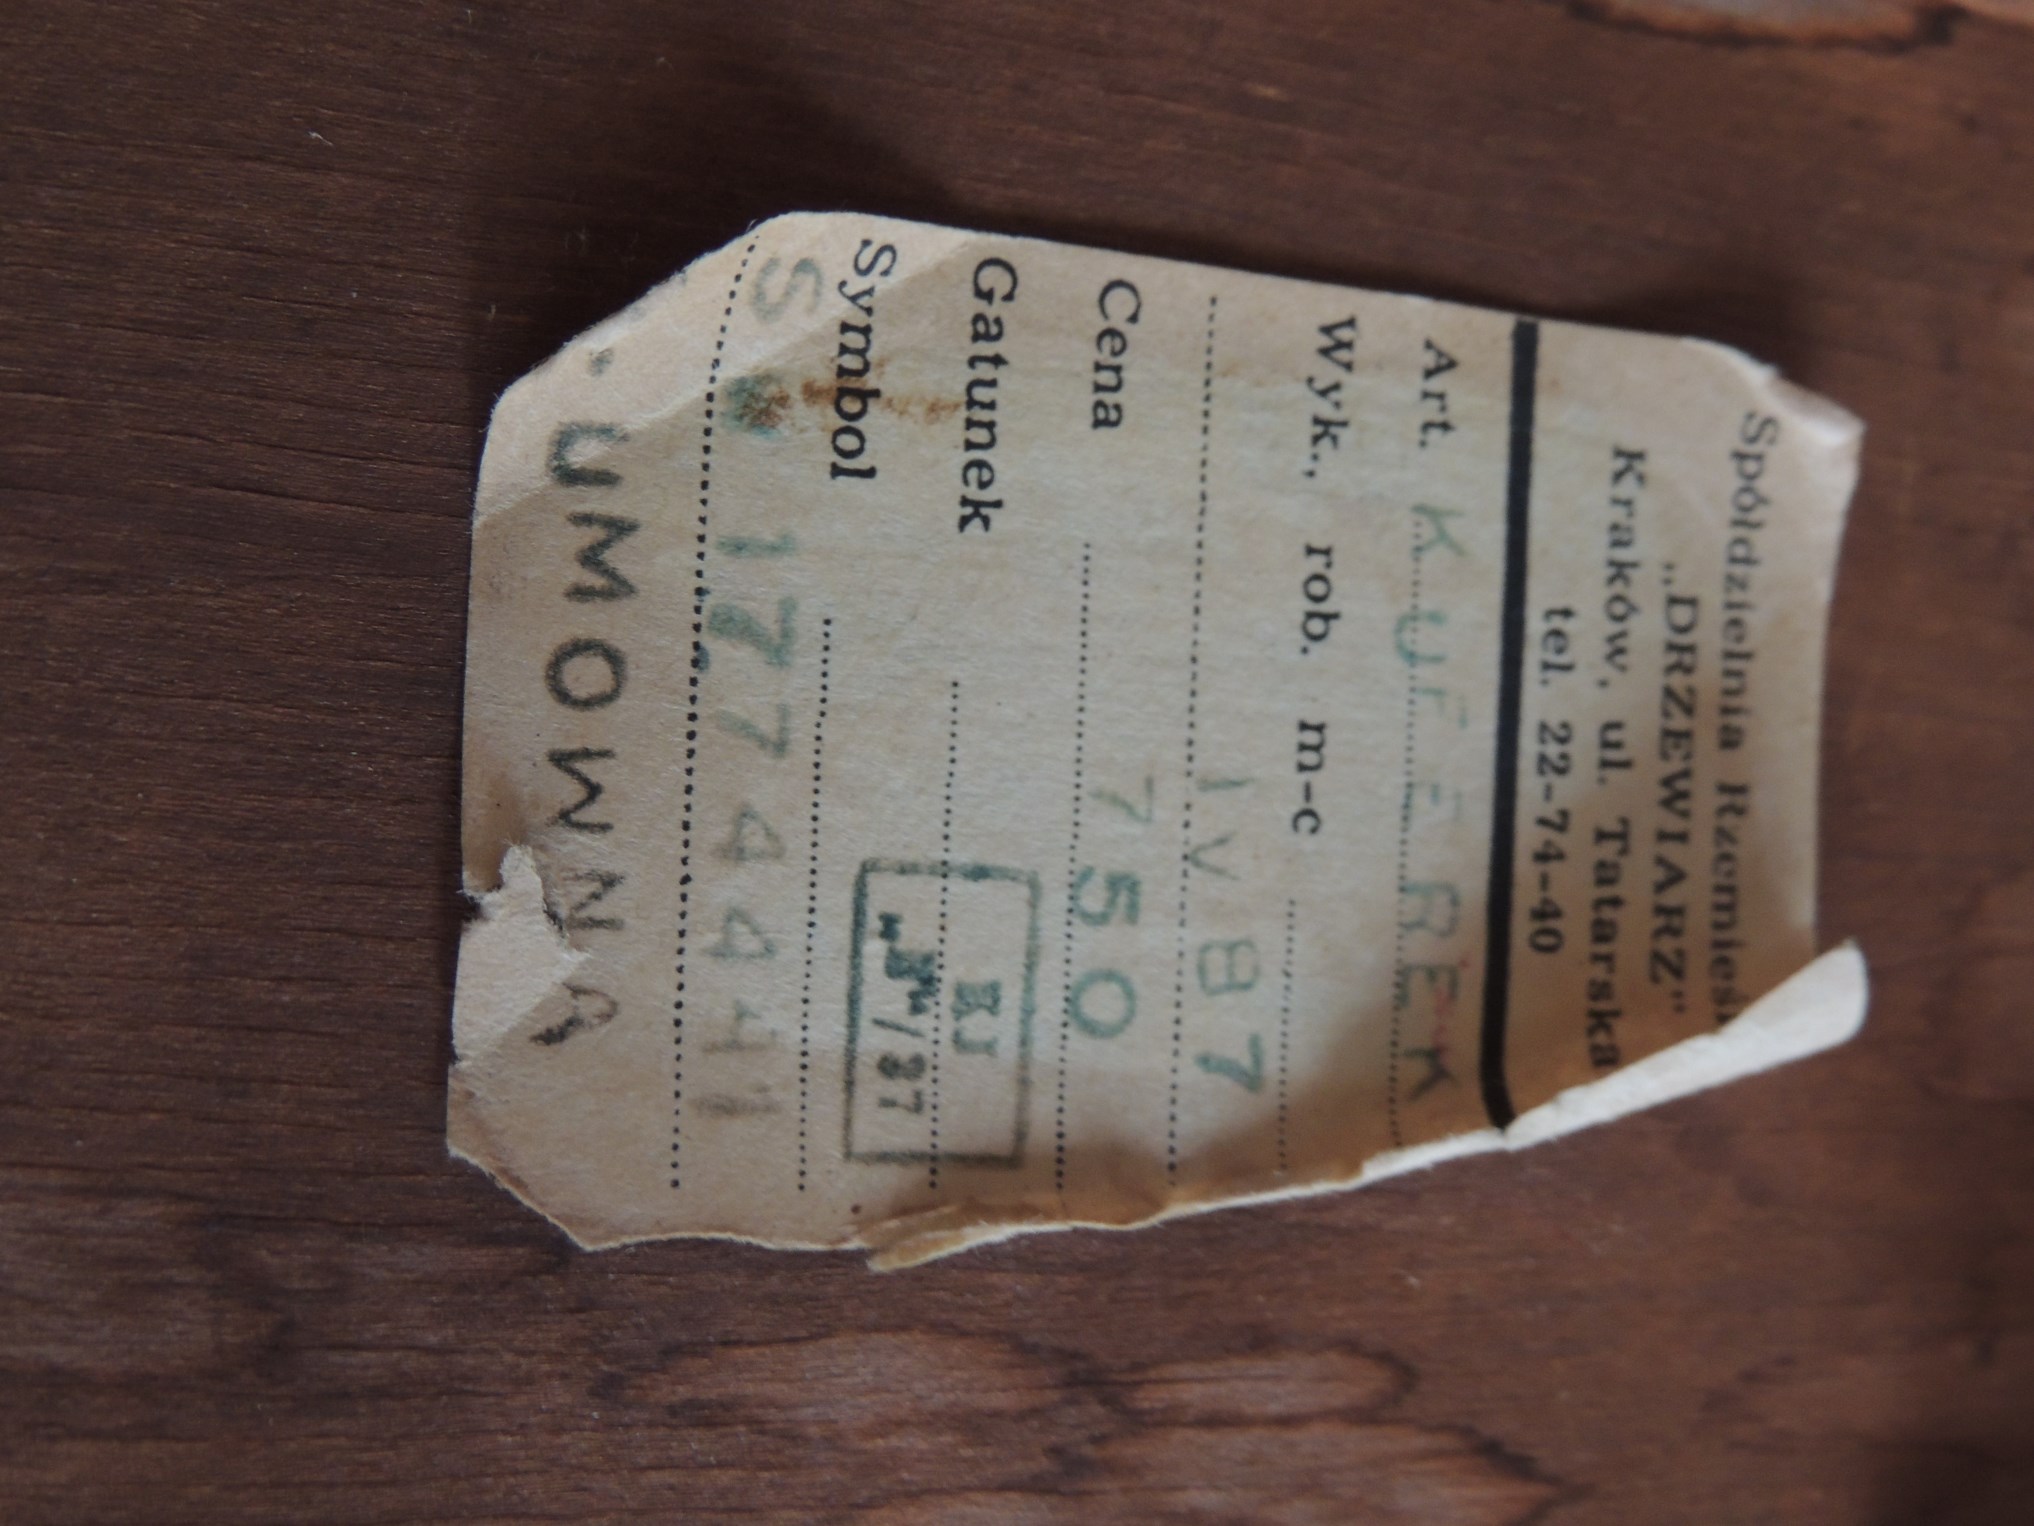 Spółdzielnia Rzemieśl
„DRZEWIARZ"
Kraków, ul. Tatarska
tel. 22-74-40
Art. KUFEREK
Wyk., rob. m-c
IV 87
Cena 750
Gatunek
KJ
Symbol
/87
177 4441
UMOWNA